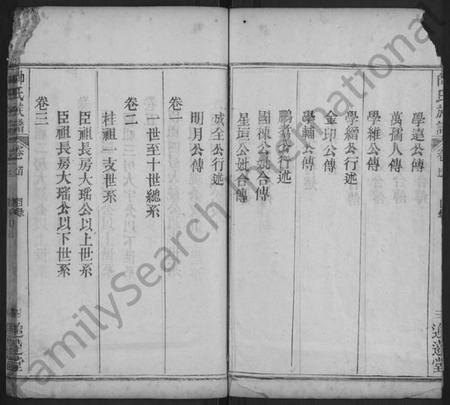 學遠公傳
萬孺人傳
學雅公傳
學縉公行述
金印公傳
學輔公傳
鵬嘉公行述
國棟公妣合傳
星垣公妣合傳
誠全公行述
明月公傳
卷一
一世至十世總系
卷二
桂祖一支世系
臣祖長房大瑤公以上世系
臣祖長房大瑤公以下世系
卷三
氏族譜
卷首
目錄
三
堂
FamilySearch International